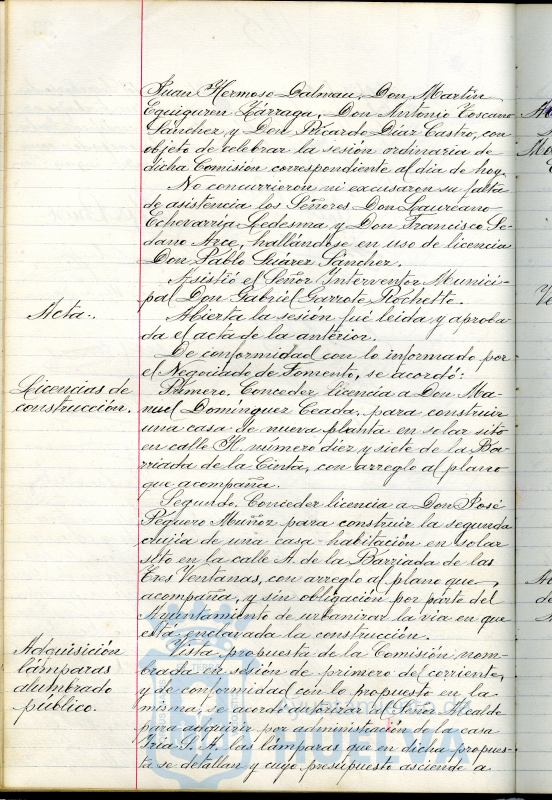 Juan Hermoso Dalmau, Don Martín
Eguiguren Lárraga, Don Antonio Toscano
Sánchez y Don Ricardo Díaz Castro, con
objeto de celebrar la sesión ordinaria de
dicha Comisión correspondiente al día de hoy.
No concurrieron ni excusaron su falta
de asistencia los Señores Don Laureano
Echevarría Ledesma y Don Francisco Se-
dano Arce, hallándose en uso de licencia
Don Pablo Suárez Sánchez.
Asistió el Señor Interventor Munici-
pal Don Gabriel Garrote Rochette.
Acta.
Abierta la sesión fué leida y aproba-
da el acta de la anterior.
De conformidad con lo informado por
el Negociado de Fomento, se acordó:
Licencias de
construcción.
Primero. Conceder licencia a Don Ma-
nuel Dominguez Ceada, para construir
una casa de nueva planta en solar sito
en calle H. número diez y siete de la Ba-
rriada de la Cinta, con arreglo al plano
que acompaña.
Segundo. Conceder licencia a Don José
Peguero Muñoz para construir la segunda
crujia de una casa-habitación en solar
sito en la calle A. de la Barriada de las
Tres Ventanas, con arreglo al plano que
acompaña, y sin obligación por parte del
Ayuntamiento de urbanizar la vía en que
está enclavada la construcción.
Adquisición
lámparas
alumbrado
público.
Vista propuesta de la Comisión nom-
brada en sesión de primero del corriente,
y de conformidad con lo propuesto en la
misma, se acordó autorizar al Señor Alcalde
para adquirir por administración de la casa
Iria S. A. las lámparas que en dicha propues-
ta se detallan y cuyo presupuesto asciende a
HUELVA